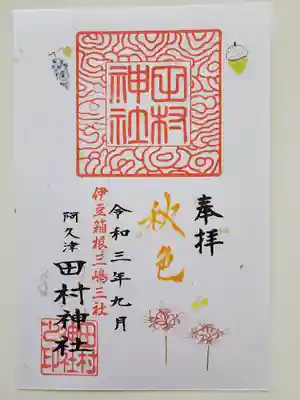 田村
神社
奉拝
秋色
令和三年九月
伊豆箱根三嶋三社
阿久津
田村神社
田村
神社
之印